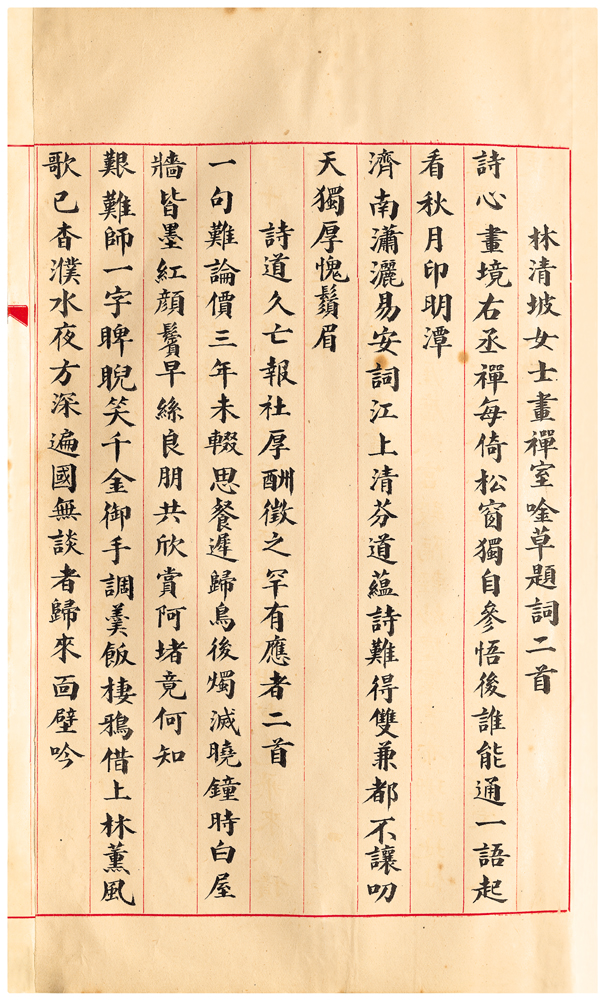 林清坡女士畫禪室唫草題詞二首
詩心畫境右丞禪每倚松窗獨自參悟後誰能通一語起
看秋月印明潭
濟南瀟灑易安詞江上清芬道蘊詩難得雙兼都不讓叨
天獨厚愧鬚眉
詩道久亡報社厚酬徵之罕有應者二首
一句難論價三年未輟思餐遲歸鳥後燭滅曉鐘時白屋
牆皆墨紅顏鬢早絲良朋共欣賞阿堵竟何知
艱難師一字睥睨笑千金御手調羹飯棲鴉借上林薰風
歌已杳濮水夜方深遍國無談者歸來面壁吟